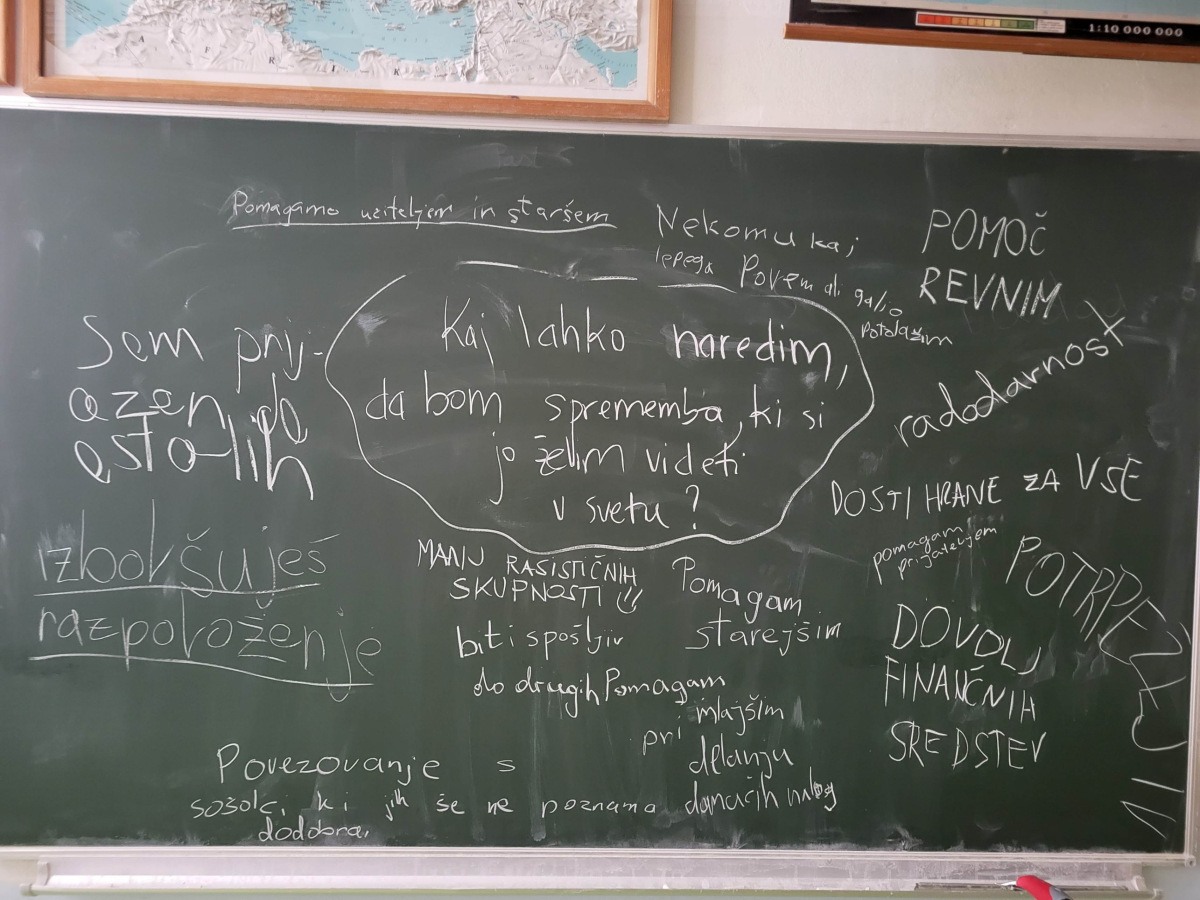 A F R I K
1:10 000 000
Pomagamo učiteljem in staršem
Nekomu kaj
lepega Povem ali ga/jo
Potolažim
POMOČ
REVNIM
Kaj lahko naredim,
da bom sprememba, ki si
jo želim videti
v svetu?
Sem prij-
azen do
ostalih
radodarnost
DOSTI HRANE ZA VSE
pomagam
prijateljem
izbolšuješ
razpoloženje
MANJ RASISTIČNIH
SKUPNOSTI !!
Pomagam
starejšim
biti spoštljiv
do drugih
Pomagam
mlajšim
pri
delanju
domačih nalog
DOVOLJ
FINANČNIH
SREDSTEV
Povezovanje s
sošolci, ki jih še ne poznamo
dodobra.